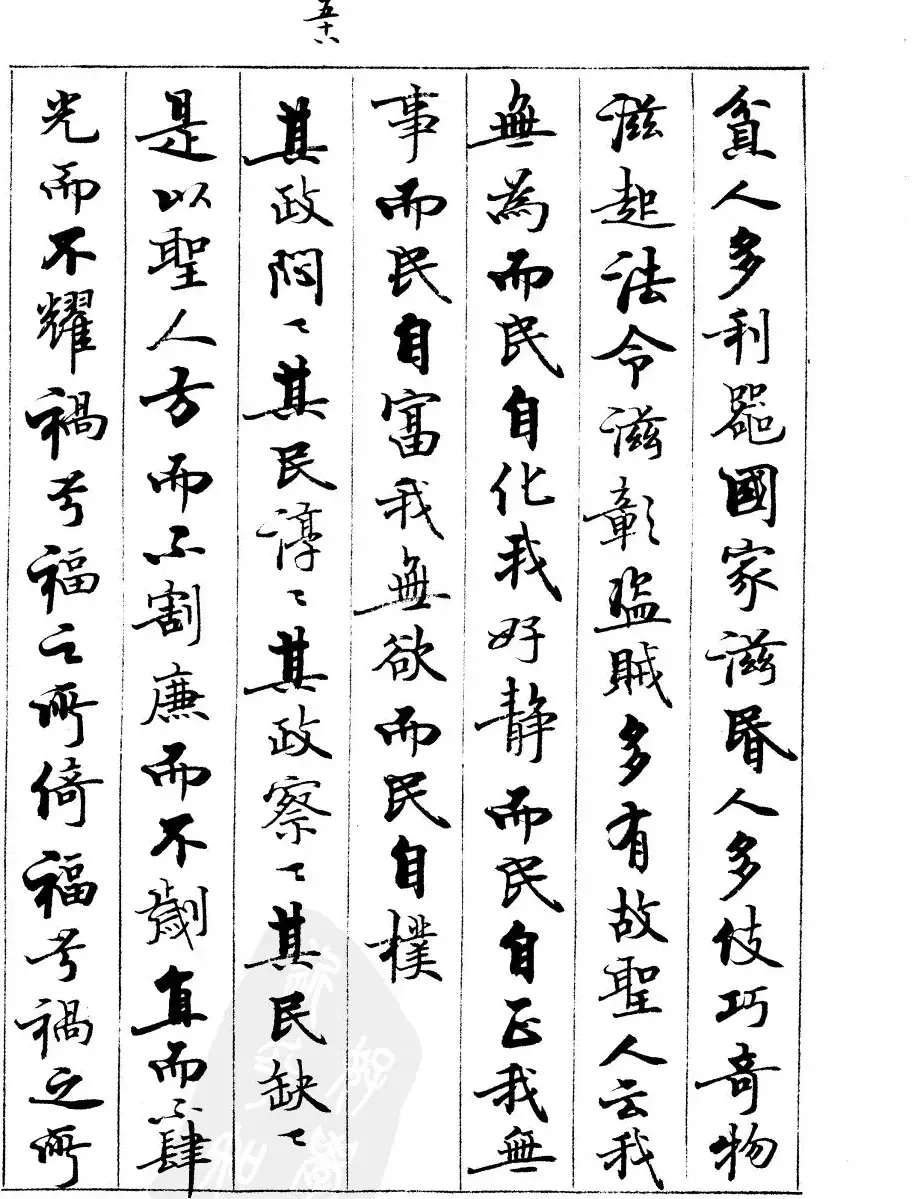 五十八
貧人多利器國家滋昬人多伎巧奇物
滋起法令滋彰盜賊多有故聖人云我
無為而民自化我好靜而民自正我無
事而民自富我無欲而民自樸
其政悶〻其民淳〻其政察〻其民缺〻
是以聖人方而不割廉而不劌直而不肆
光而不耀禍兮福之所倚福兮禍之所